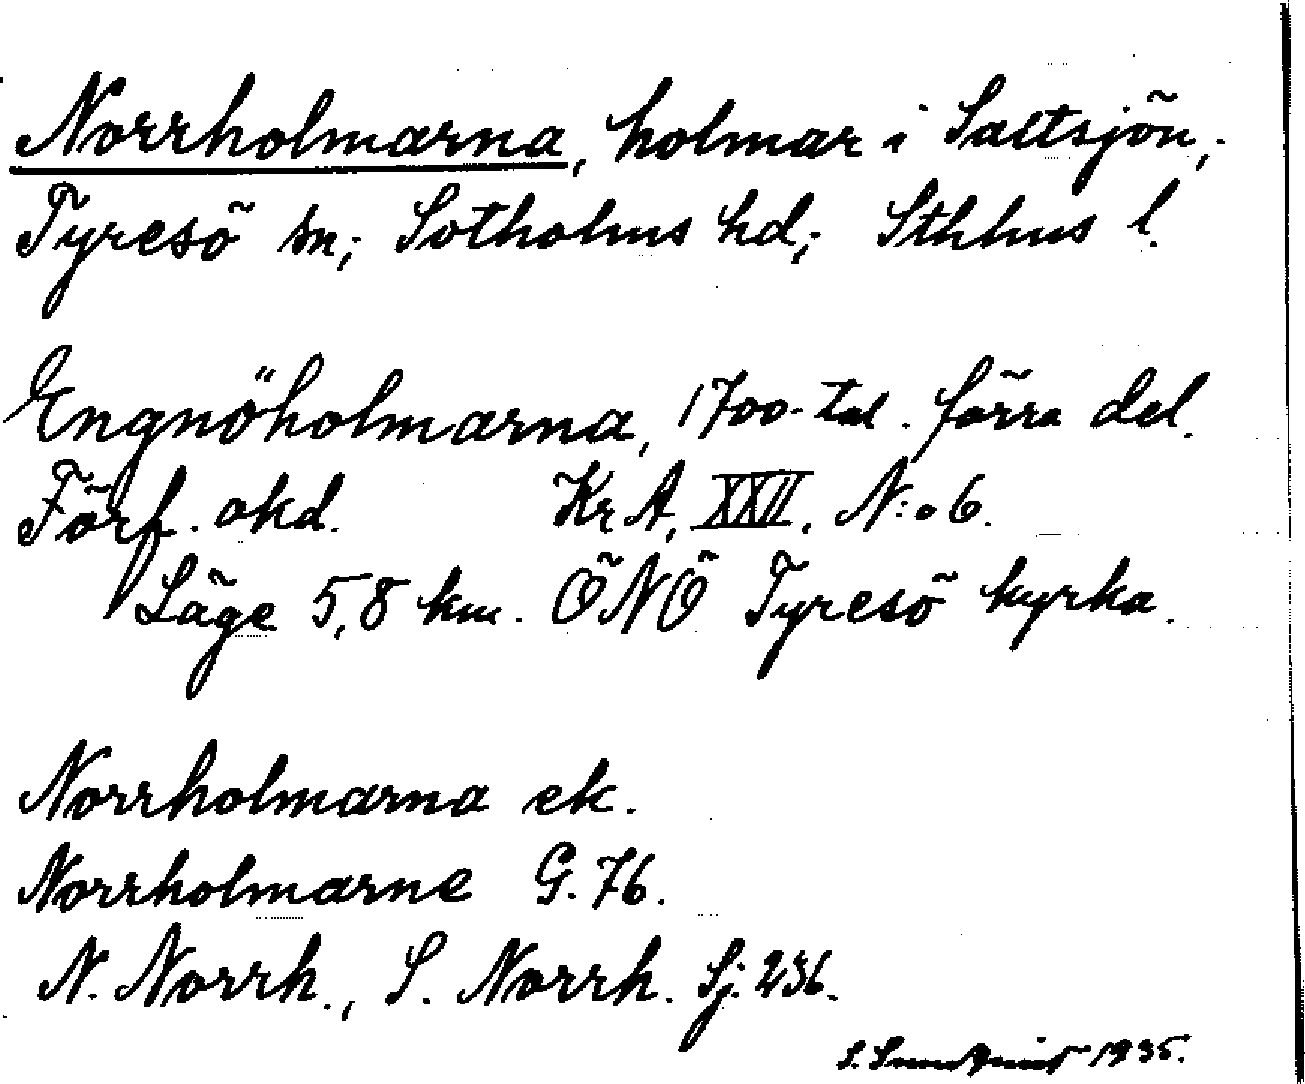 Norrholmarna, holmar i Saltsjön,;
Tyresö sn; Sotholms hd; Sthlms l.
Engnöholmarna, 1700-tal. förra del.
Förf. okd. Kr A, XXII, N:o 6.
Läge 5,8 km. ÖNÖ Tyresö kyrka.
Norrholmarna ek.
Norrholmarne G. 76.
N. Norrh., S. Norrh. Sj. 236.
S. 1935.